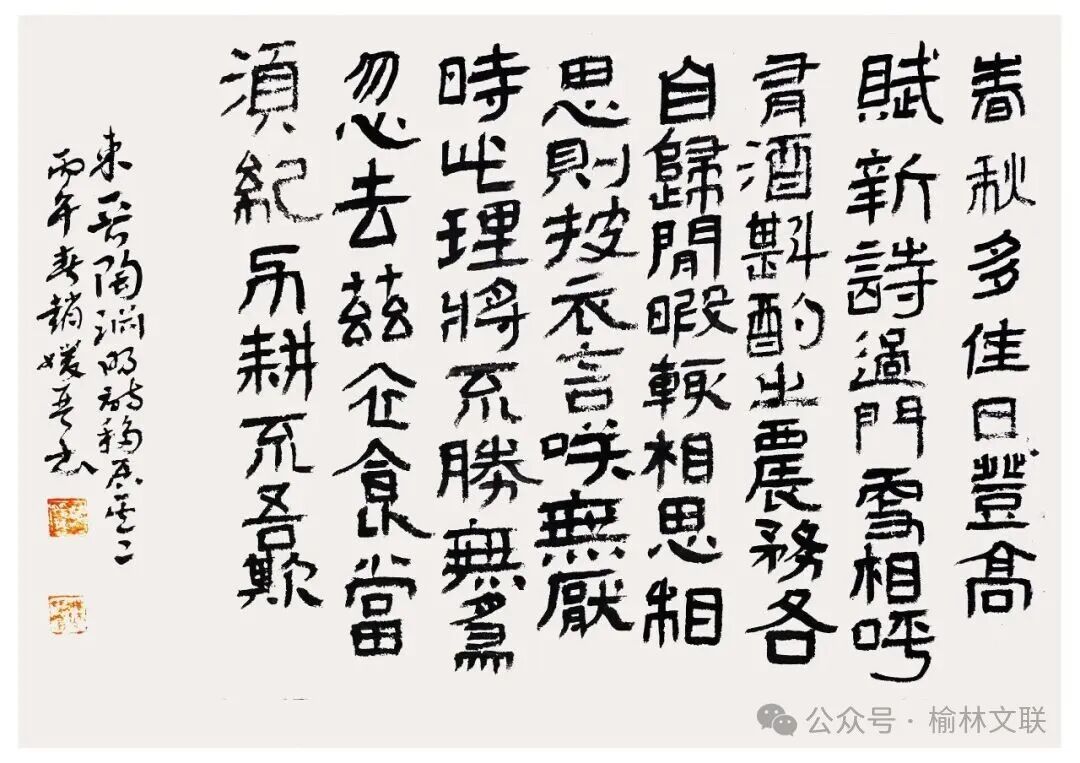 春秋多佳日登高
賦新詩過門更相呼
有酒斟酌之農務各
自歸閒暇輒相思相
思則披衣言咲無厭
時此理將不勝無為
忽去茲衣食當
須紀力耕不吾欺
東晉陶淵明詩移居其二
丙午春趙媛書
公众号·榆林文联